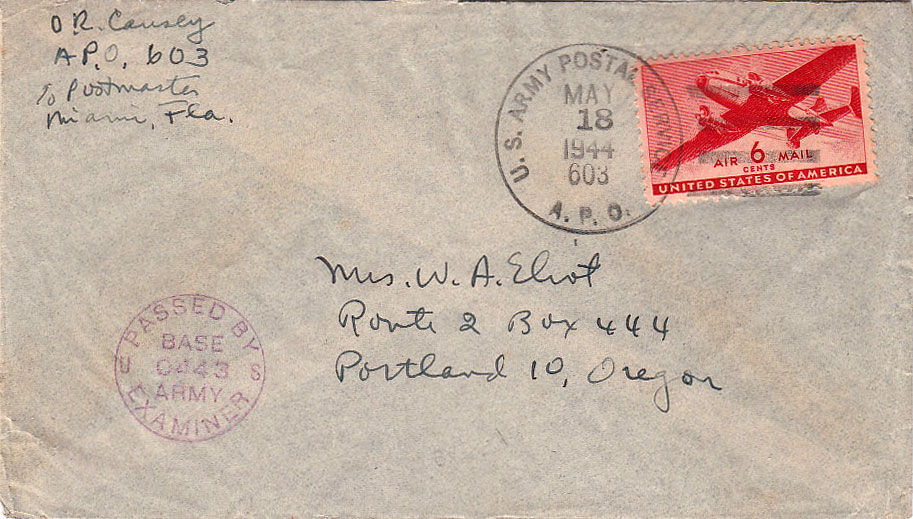 O.R. Causey
A.P.O. 603
℅ Postmaster
Miami, Fla.
U.S. ARMY POSTAL SERVICE
MAY
18
1944
603
A.P.O.
AIR 6 MAIL
CENTS
UNITED STATES OF AMERICA
Mrs. W. A. Eliot
Route 2 Box 444
Portland 10, Oregon
PASSED BY
BASE
U 0443 S
ARMY
EXAMINER